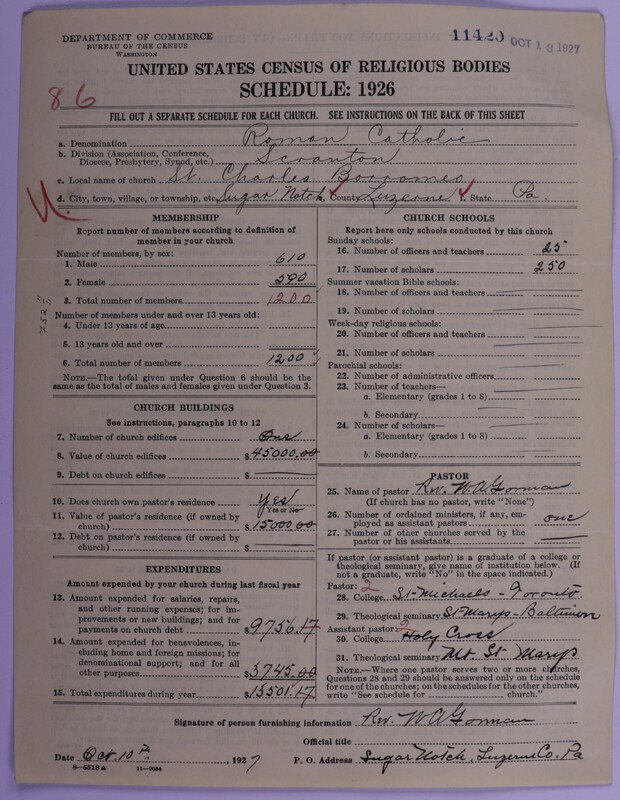 DEPARTMENT OF COMMERCE
BUREAU OF THE CENSUS
WASHINGTON
11420 OCT 13 1927
UNITED STATES CENSUS OF RELIGIOUS BODIES
SCHEDULE: 1926
86
FILL OUT A SEPARATE SCHEDULE FOR EACH CHURCH. SEE INSTRUCTIONS ON THE BACK OF THIS SHEET
a. Denomination Roman Catholic
b. Division (Association, Conference,
Diocese, Presbytery, Synod, etc.) Scranton
c. Local name of church St. Charles Borromeo
d. City, town, village, or township, etc. Sugar Notch County Luzerne f. State Pa.
MEMBERSHIP
Report number of members according to definition of
member in your church
Number of members, by sex:
1. Male 610
2. Female 590
3. Total number of members 1200
Number of members under and over 13 years old:
4. Under 13 years of age
5. 13 years old and over
6. Total number of members 1200
NOTE.—The total given under Question 6 should be the
same as the total of males and females given under Question 3.
CHURCH BUILDINGS
See instructions, paragraphs 10 to 12
7. Number of church edifices One
8. Value of church edifices $45000.00
9. Debt on church edifices $
10. Does church own pastor's residence Yes
Yes or No
11. Value of pastor's residence (if owned by
church) $15000.00
12. Debt on pastor's residence (if owned by
church) $
EXPENDITURES
Amount expended by your church during last fiscal year
13. Amount expended for salaries, repairs,
and other running expenses; for im-
provements or new buildings; and for
payments on church debt $9756.17
14. Amount expended for benevolences, in-
cluding home and foreign missions; for
denominational support; and for all
other purposes $3745.00
15. Total expenditures during year $13501.17
CHURCH SCHOOLS
Report here only schools conducted by this church
Sunday schools:
16. Number of officers and teachers 25
17. Number of scholars 250
Summer vacation Bible schools:
18. Number of officers and teachers
19. Number of scholars
Week-day religious schools:
20. Number of officers and teachers
21. Number of scholars
Parochial schools:
22. Number of administrative officers
23. Number of teachers—
a. Elementary (grades 1 to 8)
b. Secondary
24. Number of scholars—
a. Elementary (grades 1 to 8)
b. Secondary
PASTOR
25. Name of pastor Rev. W. A. Gorman
(If church has no pastor, write "None")
26. Number of ordained ministers, if any, em-
ployed as assistant pastors one
27. Number of other churches served by the
pastor or his assistants
If pastor (or assistant pastor) is a graduate of a college or
theological seminary, give name of institution below. (If
not a graduate, write "No" in the space indicated.)
Pastor: 2
28. College St-Michaels-Toronto
29. Theological seminary St-Marys-Baltimore
Assistant pastor: 2
30. College Holy Cross
31. Theological seminary Mt. St-Marys
NOTE.—Where one pastor serves two or more churches,
Questions 28 and 29 should be answered only on the schedule
for one of the churches; on the schedules for the other churches,
write "See schedule for church."
Signature of person furnishing information Rev. W A Gorman
Official title
Date Oct. 10th, 1927 P. O. Address Sugar Notch, Luzerne Co. Pa
8—5518 a 11—9084